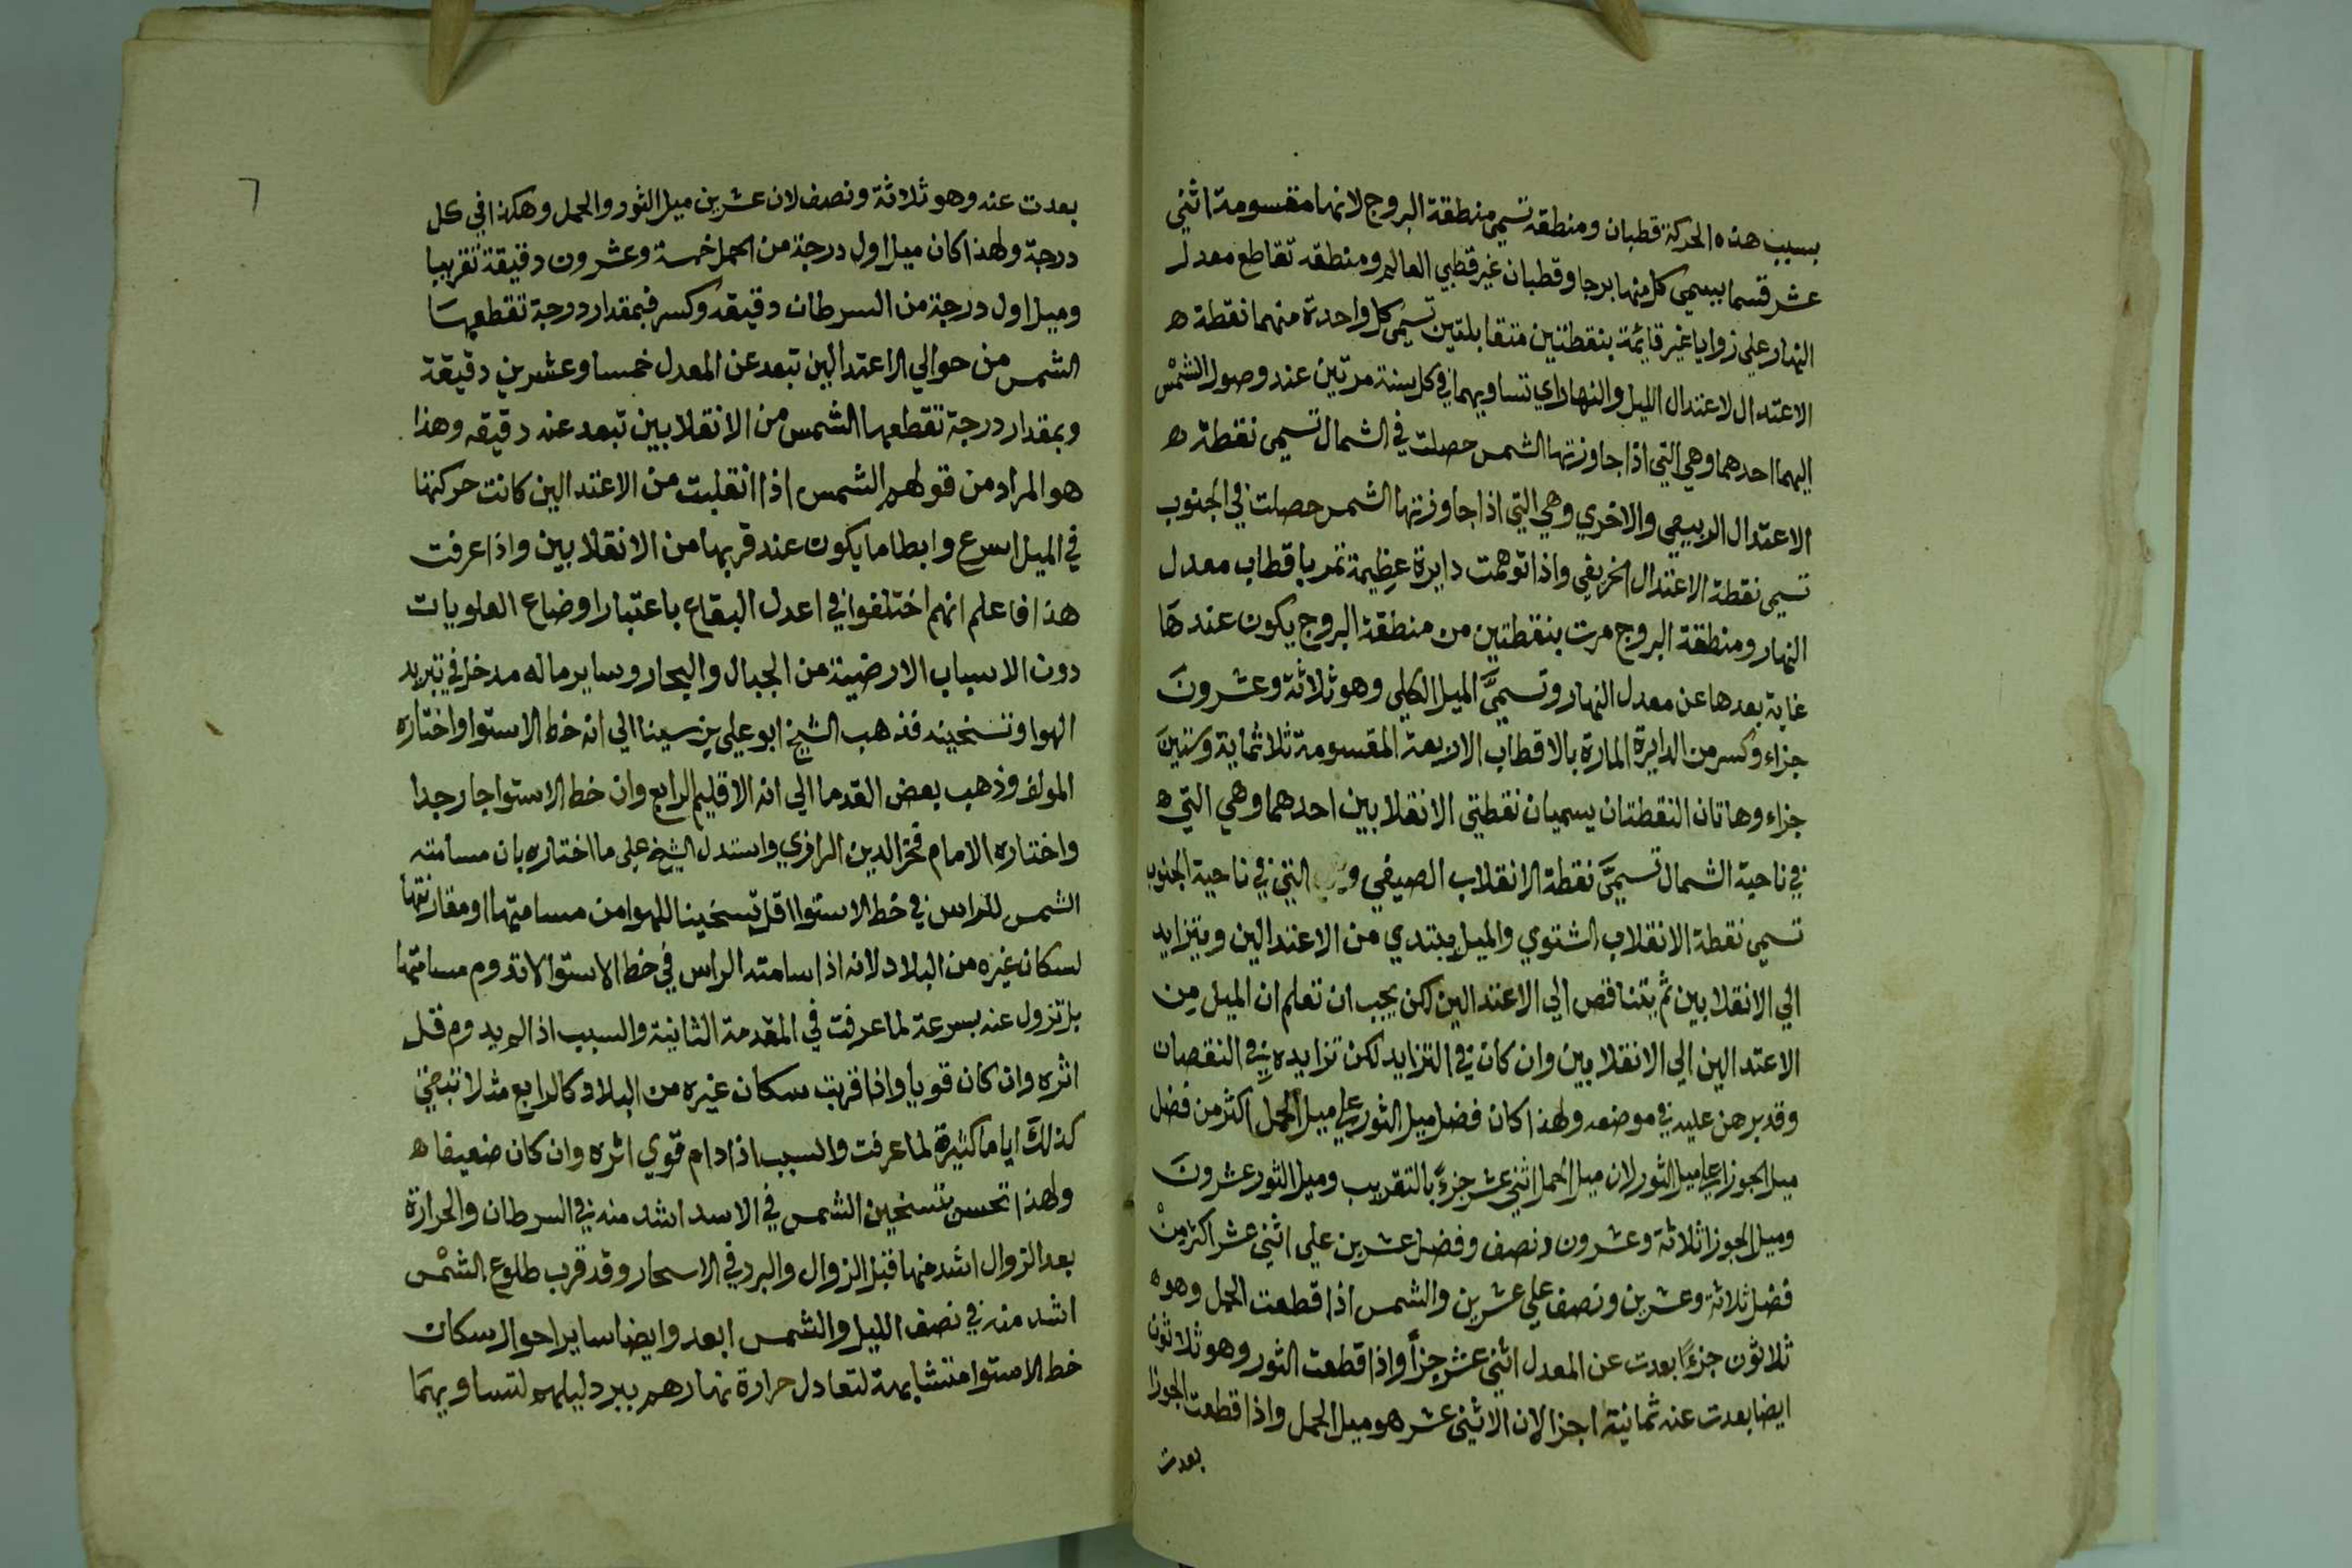 بسبب هذه الحركة قطبان ومنطقه تسمي منطقة البروج لانها مقسومة اثني
عشر قسما يسمي كل منها برجا وقطبان غير قطبي العالم ومنطقه تقاطع معدل
النهار علي زوايا غير قايمة بنقطتين متقابلتين تسمي كل واحدة منهما نقطة ه
الاعتدال لاعتدال الليل والنهار اي تساويهما في كل سنة مرتين عند وصول الشمس
اليهما احدهما وهي التي اذا جاوزتها الشمس حصلت في الشمال تسمي نقطة ه
الاعتدال الربيعي والاخري وهي التي اذا جاوزتها الشمس حصلت في الجنوب
تسمي نقطة الاعتدال الخريفي واذا توهمت دايرة عظيمة تمر باقطاب معدل
النهار ومنطقة البروج مرت بنقطتين من منطقة البروج يكون عندها
غاية بعدها عن معدل النهار وتسمي الميل الكلي وهو ثلاثة وعشرون
جزاء وكسر من الدايرة المارة بالاقطاب الاربعة المقسومة ثلاثماية وستين
جزاء وهاتان النقطتان يسميان نقطتي الانقلابين احدهما وهي التي ه
في ناحية الشمال تسمي نقطة الانقلاب الصيفي التي في ناحية الجنوب
تسمي نقطة الانقلاب الشتوي والميل يبتدي من الاعتدالين ويتزايد
الي الانقلابين ثم يتناقص الي الاعتدالين لكن يجب ان تعلم ان الميل من
الاعتدالين الي الانقلابين وان كان في التزايد لكن تزايده في النقصان
وقد برهن عليه في موضعه ولهذا كان فضل ميل الثور علي ميل الحمل اكثر من فضل
ميل الجوزا علي ميل الثور لان ميل الحمل اثني عشر جزءً بالتقريب وميل الثور عشرون
وميل الجوزا ثلاثة وعشرون ونصف وفضل عشرين علي اثني عشر اكثر من
فضل ثلاثة وعشرين ونصف علي عشرين والشمس اذا قطعت الحمل وهو ه
ثلاثون جزءًا بعدت عن المعدل اثني عشر جزأ واذا قطعت الثور وهو ثلاثون
ايضا بعدت عنه ثمانية اجزا لان الاثني عشر هو ميل الحمل واذا قطعت الجوزا
بعدت
٦
بعدت عنه وهو ثلاثة ونصف لان عشرين ميل الثور والحمل وهكذا في كل
درجة ولهذا كان ميل اول درجة من الحمل خمسة وعشرون دقيقة تقريبا
وميل اول درجة من السرطان دقيقه وكسر فبمقدار درجة تقطعها
الشمس من حوالي الاعتدالين تبعد عن المعدل خمسا وعشرين دقيقة
وبمقدار درجة تقطعها الشمس من الانقلابين تبعد عنه دقيقه وهذا
هو المراد من قولهم الشمس اذا انقلبت من الاعتدالين كانت حركتها
في الميل اسرع وابطا ما يكون عند قربها من الانقلابين واذا عرفت
هذا فاعلم انهم اختلفوا في اعدل البقاع باعتبار اوضاع العلويات
دون الاسباب الارضية من الجبال والبحار وساير ماله مدخل في تبريد
الهوا وتسخينه فذهب الشيخ ابو علي بن سينا الي انه خط الاستوا واختاره
المولف وذهب بعض القدما الي انه الاقليم الرابع وان خط الاستوا حار جدا
واختاره الامام فخر الدين الرازي واستدل الشيخ علي ما اختاره بان مسامته
الشمس للراس في خط الاستوا اقل تسخينا للهوا من مسامتها او مقاربتها
لسكان غيره من البلاد لانه اذا سامته الراس في خط الاستوا لا تدوم مسامتها
بل تزول عنه بسرعة لما عرفت في المقدمة الثانية والسبب اذا لم يدوم قل
اثره وان كان قويا واذا قربت سكان غيره من البلاد كالرابع مثلا تبقي
كذلك اياما كثيرة لما عرفت والسبب اذا دام قوي اثره وان كان ضعيفا ه
ولهذا تحس تسخين الشمس في الاسد اشد منه في السرطان والحرارة
بعد الزوال اشد منها قبل الزوال والبرد في الاسحار وقد قرب طلوع الشمس
اشد منه في نصف الليل والشمس ابعد وايضا ساير احوال سكان
خط الاستوا متشابهة لتعادل حرارة نهارهم ببرد ليلهم لتساويهما